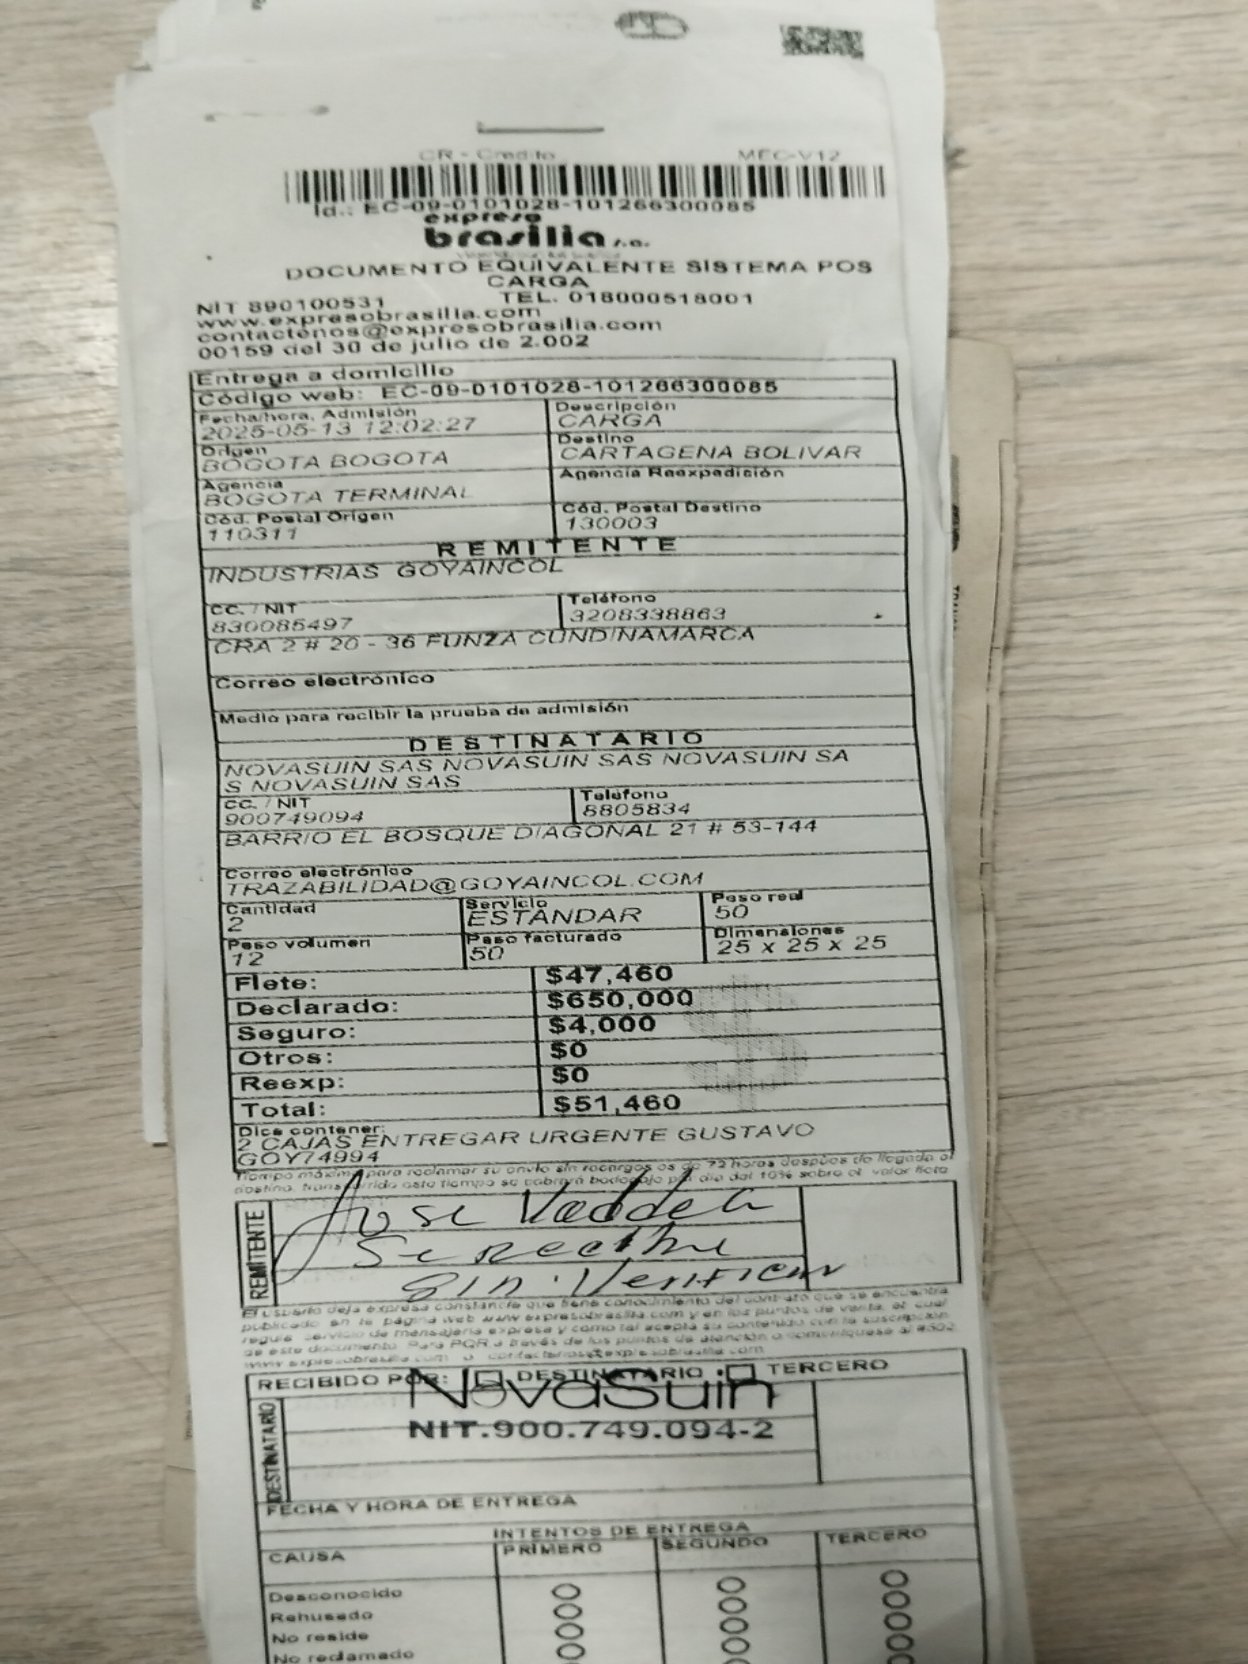 CR - Credito MEC-V12
Id.: EC-09-0101028-101266300085
expreso
brasilia s.a.
DOCUMENTO EQUIVALENTE SISTEMA POS
CARGA
NIT 890100531 TEL. 018000518001
www.expresobrasilia.com
contactenos@expresobrasilia.com
00159 del 30 de julio de 2.002
Entrega a domicilio
Código web: EC-09-0101028-101266300085
Fecha/hora. Admisión Descripción
2025-05-13 12:02:27 CARGA
Origen Destino
BOGOTA BOGOTA CARTAGENA BOLIVAR
Agencia Agencia Reexpedición
BOGOTA TERMINAL
Cód. Postal Origen Cód. Postal Destino
110311 130003
REMITENTE
INDUSTRIAS GOYAINCOL
CC. / NIT Teléfono
830085497 3208338863
CRA 2 # 20 - 36 FUNZA CUNDINAMARCA
Correo electrónico
Medio para recibir la prueba de admisión
DESTINATARIO
NOVASUIN SAS NOVASUIN SAS NOVASUIN SA
S NOVASUIN SAS
CC. / NIT Teléfono
900749094 8805834
BARRIO EL BOSQUE DIAGONAL 21 # 53-144
Correo electrónico
TRAZABILIDAD@GOYAINCOL.COM
Cantidad Servicio Peso real
2 ESTANDAR 50
Peso volumen Peso facturado Dimensiones
12 50 25 x 25 x 25
Flete: $47,460
Declarado: $650,000
Seguro: $4,000
Otros: $0
Reexp: $0
Total: $51,460
Dice contener:
2 CAJAS ENTREGAR URGENTE GUSTAVO
GOY74994
Tiempo máximo para reclamar su envío sin recargos es de 72 horas después de llegada al
destino, transcurrido este tiempo se cobrará bodegaje por día del 10% sobre el valor flete
REMITENTE
Jose
Se recibe
Sin Verificar
El usuario deja expresa constancia que tiene conocimiento del contrato que se encuentra
publicado en la página web www.expresobrasilia.com y en los puntos de venta, el cual
regula servicio de mensajería expresa y como tal acepta su contenido con la suscripción
de este documento. Para PQR a través de los puntos de atención o comuníquese al #502
www.expresobrasilia.com o contactenos@expresobrasilia.com
RECIBIDO POR: DESTINATARIO TERCERO
DESTINATARIO
NovaSuin
NIT.900.749.094-2
FECHA Y HORA DE ENTREGA
INTENTOS DE ENTREGA
CAUSA PRIMERO SEGUNDO TERCERO
Desconocido
Rehusado
No reside
No reclamado